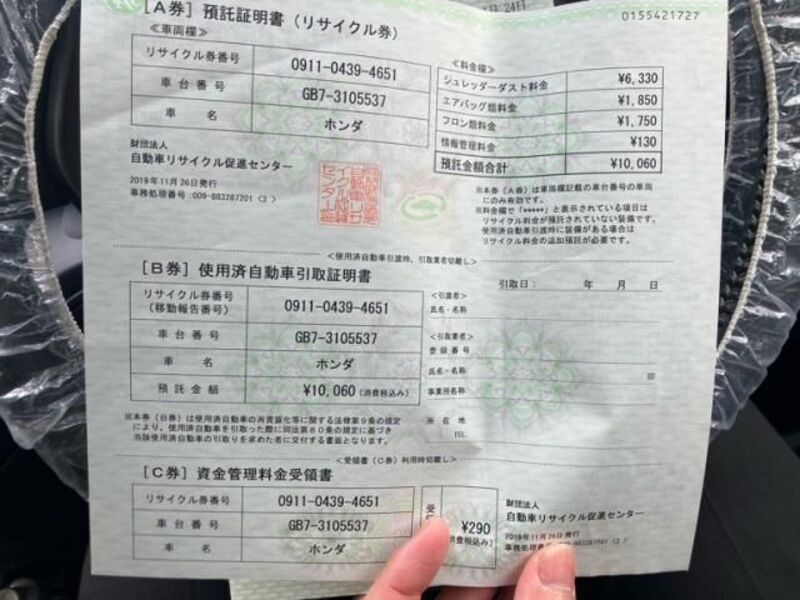 0155421727
[A券] 預託証明書(リサイクル券)
≪車両欄≫
リサイクル券番号 0911-0439-4651
車台番号 GB7-3105537
車名 ホンダ
≪料金欄≫
シュレッダーダスト料金 ¥6,330
エアバッグ類料金 ¥1,850
フロン類料金 ¥1,750
情報管理料金 ¥130
預託金額合計 ¥10,060
財団法人
自動車リサイクル促進センター
2019年11月26日発行
事務処理番号:009-883287201 《3 》
※本券(A券)は車両欄記載の車台番号の車両
にのみ有効です。
※料金欄で「*****」と表示されている項目は
リサイクル料金が預託されていない装備です。
使用済自動車引渡時に装備がある場合は
リサイクル料金の追加預託が必要です。
<使用済自動車引渡時、引取業者切離し>
[B券] 使用済自動車引取証明書
引取日: 年 月 日
リサイクル券番号
(移動報告番号) 0911-0439-4651
車台番号 GB7-3105537
車名 ホンダ
預託金額 ¥10,060(消費税込み)
<引渡者>
氏名・名称
<引取業者>
登録番号
氏名・名称 印
事業所名称
所在地
TEL
※本券(B券)は使用済自動車の再資源化等に関する法律第9条の規定
により、使用済自動車を引取った際に同法第80条の規定に基づき
当該使用済自動車の引取りを求めた者に交付する書面となります。
<受領書(C券)利用時切離し>
[C券] 資金管理料金受領書
リサイクル券番号 0911-0439-4651
車台番号 GB7-3105537
車名 ホンダ
受
¥290
消費税込み)
財団法人
自動車リサイクル促進センター
2019年11月26日発行
事務処理番号 009-883287201 《3 》